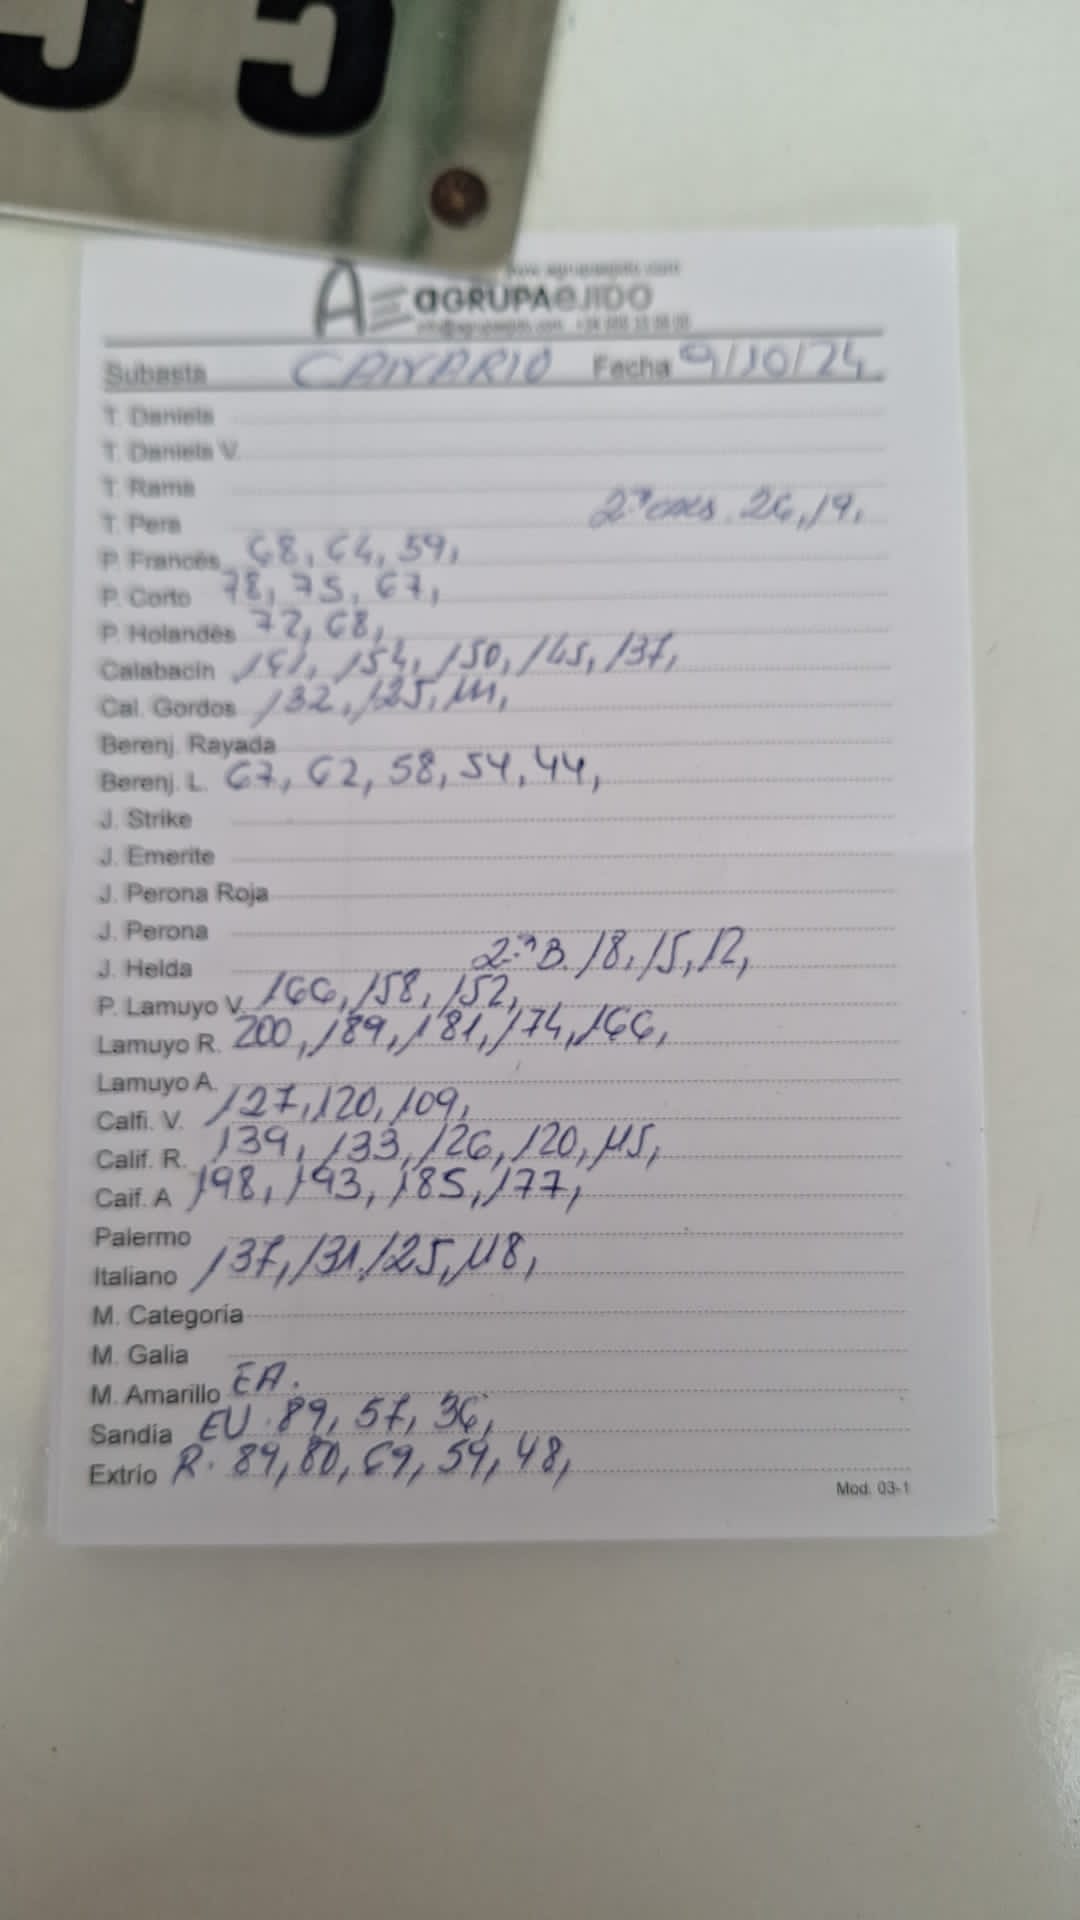 55
www.agrupaejido.com
AE aGRUPAeJIDO
info@agrupaejido.com
Subasta CANARIO Fecha 9/10/24
T. Daniela
T. Daniela V.
T. Rama
T. Pera 26, 19,
P. Francés 68, 64, 59,
P. Corto 78, 75, 67,
P. Holandés 72, 68,
Calabacín 161, 154, 150, 145, 137,
Cal. Gordos 132, 125, 111,
Berenj. Rayada
Berenj. L. 67, 62, 58, 54, 44,
J. Strike
J. Emerite
J. Perona Roja
J. Perona
J. Helda 2ªB. 18, 15, 12,
P. Lamuyo V. 166, 158, 152,
Lamuyo R. 200, 189, 181, 174, 166,
Lamuyo A.
Calfi. V. 127, 120, 109,
Calif. R. 139, 133, 126, 120, 115,
Caif. A 198, 193, 185, 177,
Palermo
Italiano 137, 131, 125, 118,
M. Categoría
M. Galia
M. Amarillo EA.
Sandía EU. 89, 57, 36,
Extrío R. 89, 80, 69, 59, 48,
Mod. 03-1